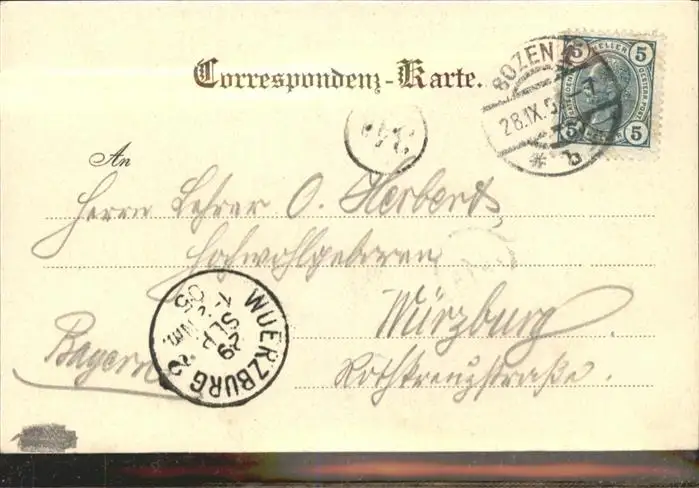 Correspondenz-Karte.
BOZEN
28.IX.
5 HELLER 5
5 HELLER 5
An
Herrn Lehrer O. Herbert,
Hochwohlgeboren
Würzburg.
Bayern
Rothkreuzstraße.
WUERZBURG 2
29
SEP.
05